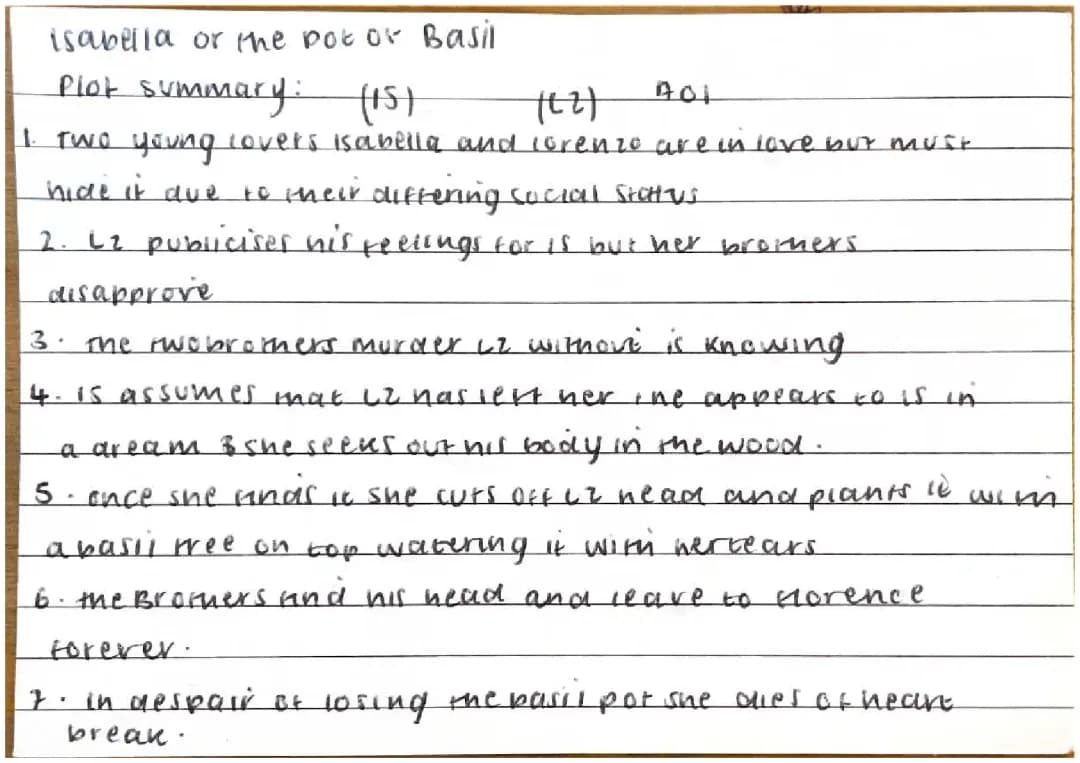 isabella or the pot of Basil
Plot summary: (IS) (LZ) AO1
1. Two young lovers isabella and lorenzo are in love but must
hide it due to their differing social status
2. LZ publicises his feelings for IS but her brothers
disapprove
3. The two brothers murder LZ without is knowing
4. IS assumes that LZ has left her, he appears to IS in
a dream & she seeks out his body in the wood.
5. once she finds it she cuts off LZ head and plants it with
a basil tree on top watering it with her tears
6. the Brothers find his head and leave to Florence
forever.
7. in despair of losing the basil pot she dies of heart
break.